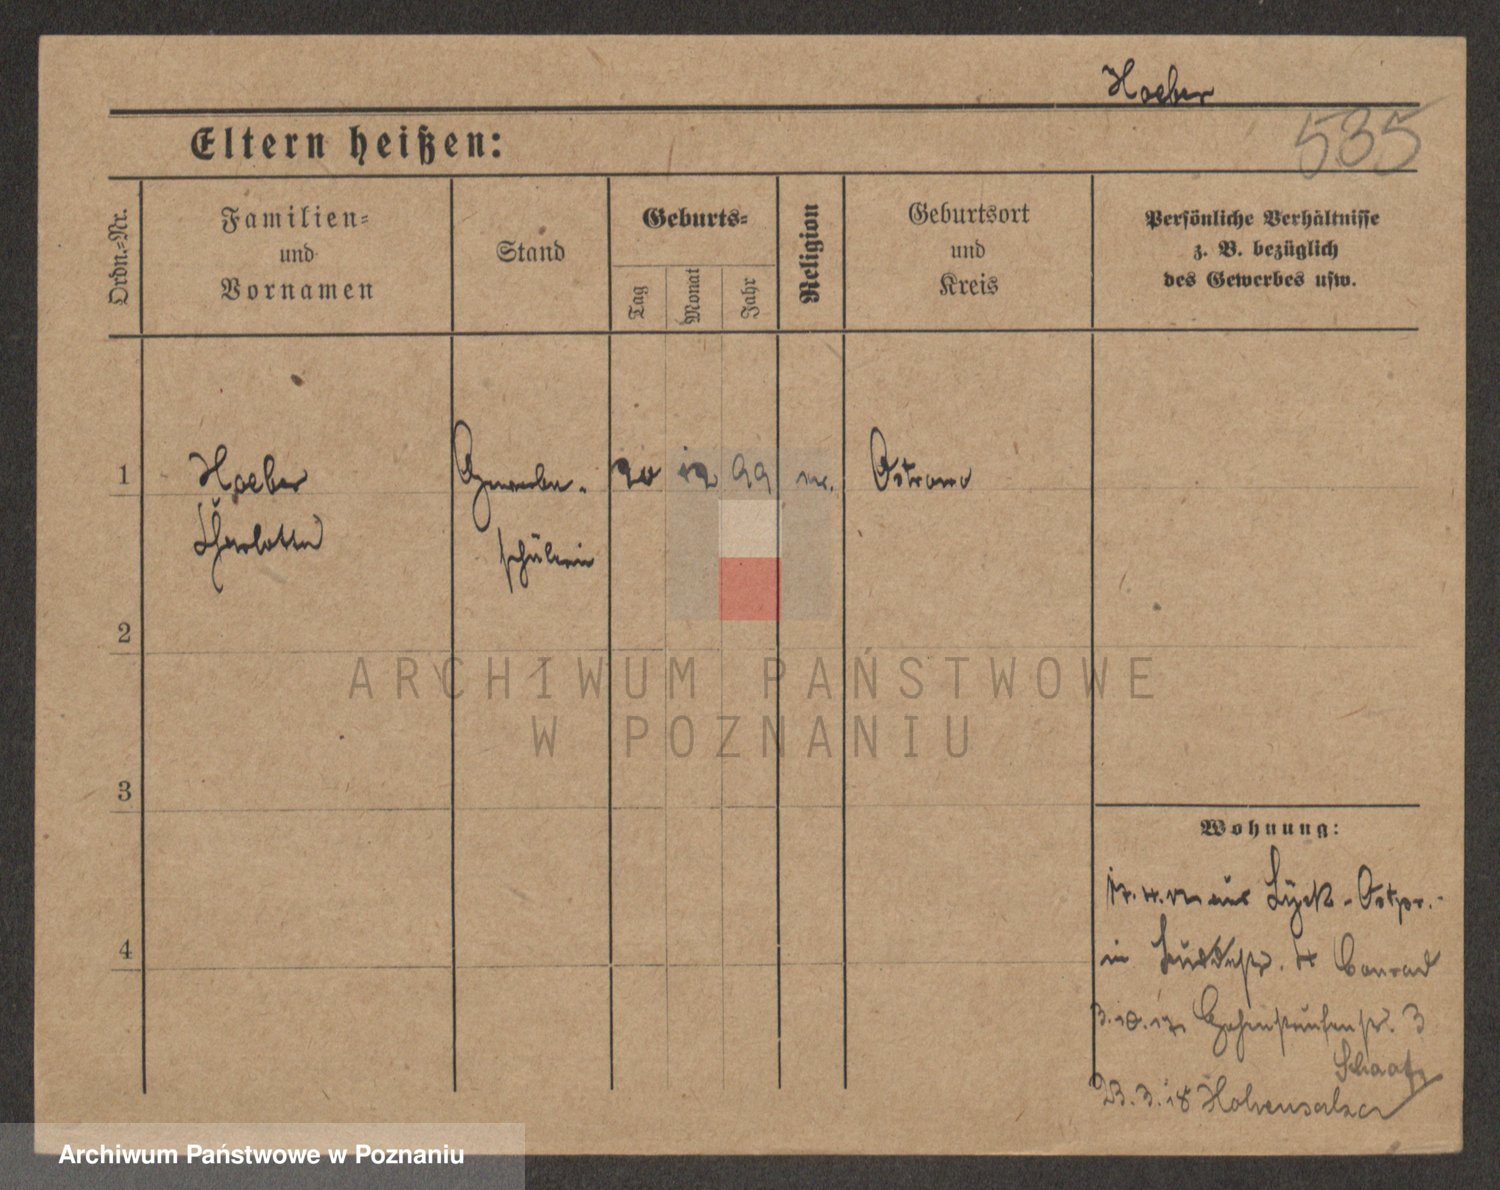 Hoeber
535
Eltern heißen:
Ordn.=Nr.
Familien=
und
Vornamen
Stand
Geburts=
Tag
Monat
Jahr
Religion
Geburtsort
und
Kreis
Persönliche Verhältnisse
z. B. bezüglich
des Gewerbes usw.
1
Hoeber
Charlotte
Gewerbe-
schülerin
20 12 99
Ostrowo
2
ARCHIWUM PAŃSTWOWE
W POZNANIU
3
Wohnung:
aus Lyck - Ostpr.
4
in 4 Conrad
3.10.17 Hohenstaufenstr. 3
Schaatz
23.3.18 Hohensalza
Archiwum Państwowe w Poznaniu